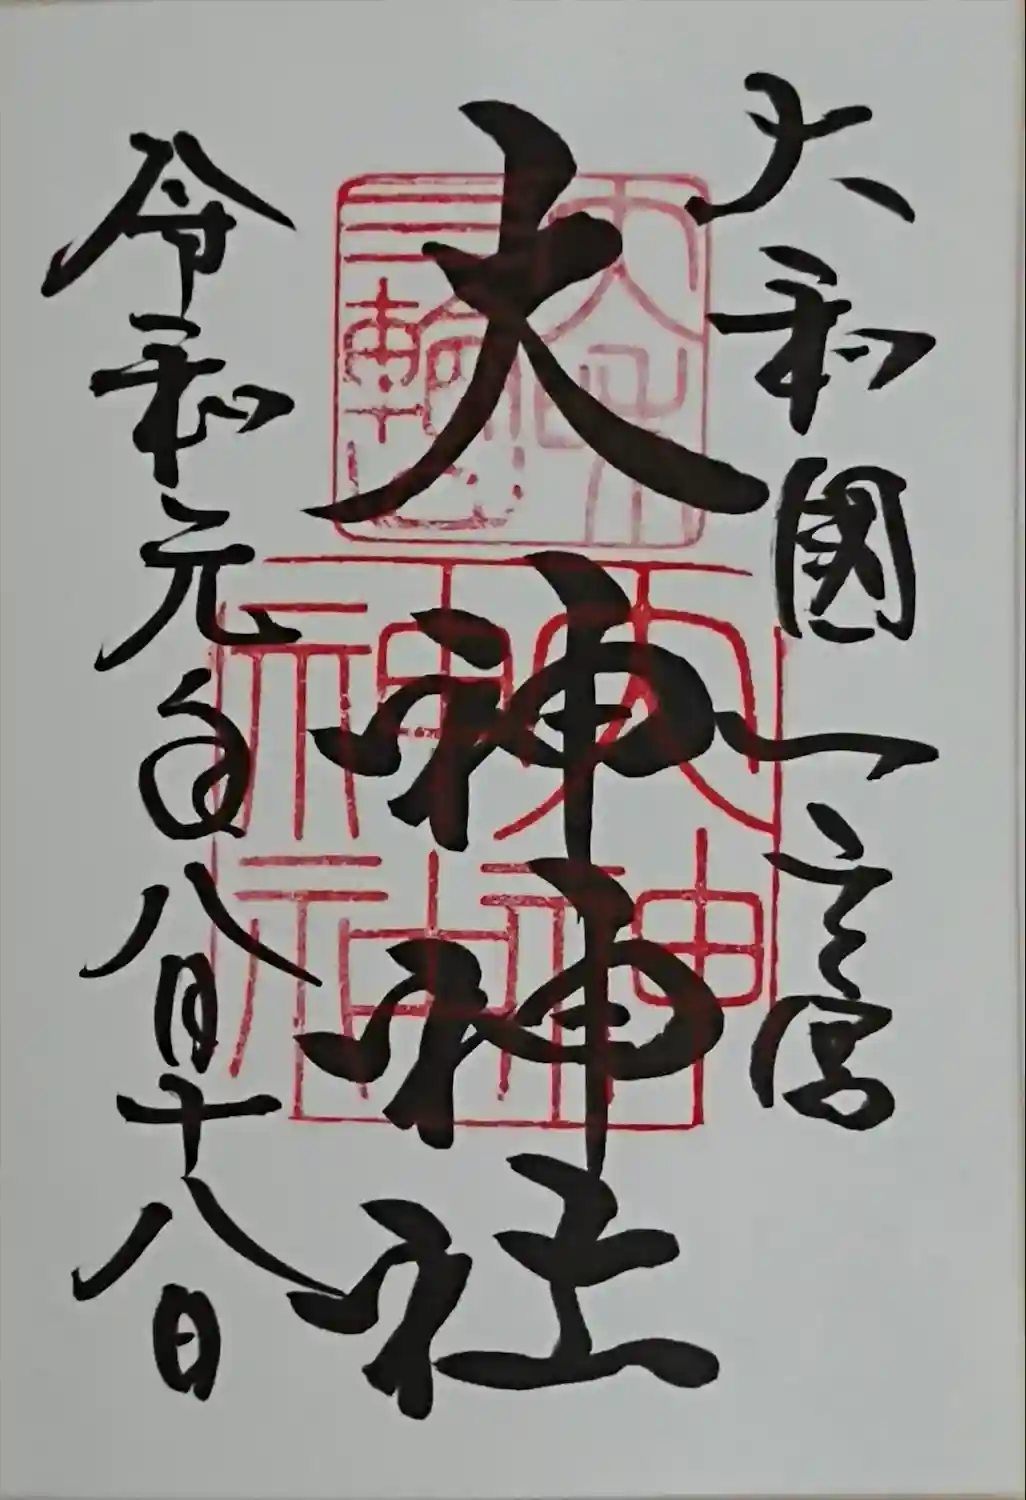 大和國一之宮
大神神社
令和元年八月十八日
三輪山
大神
神社